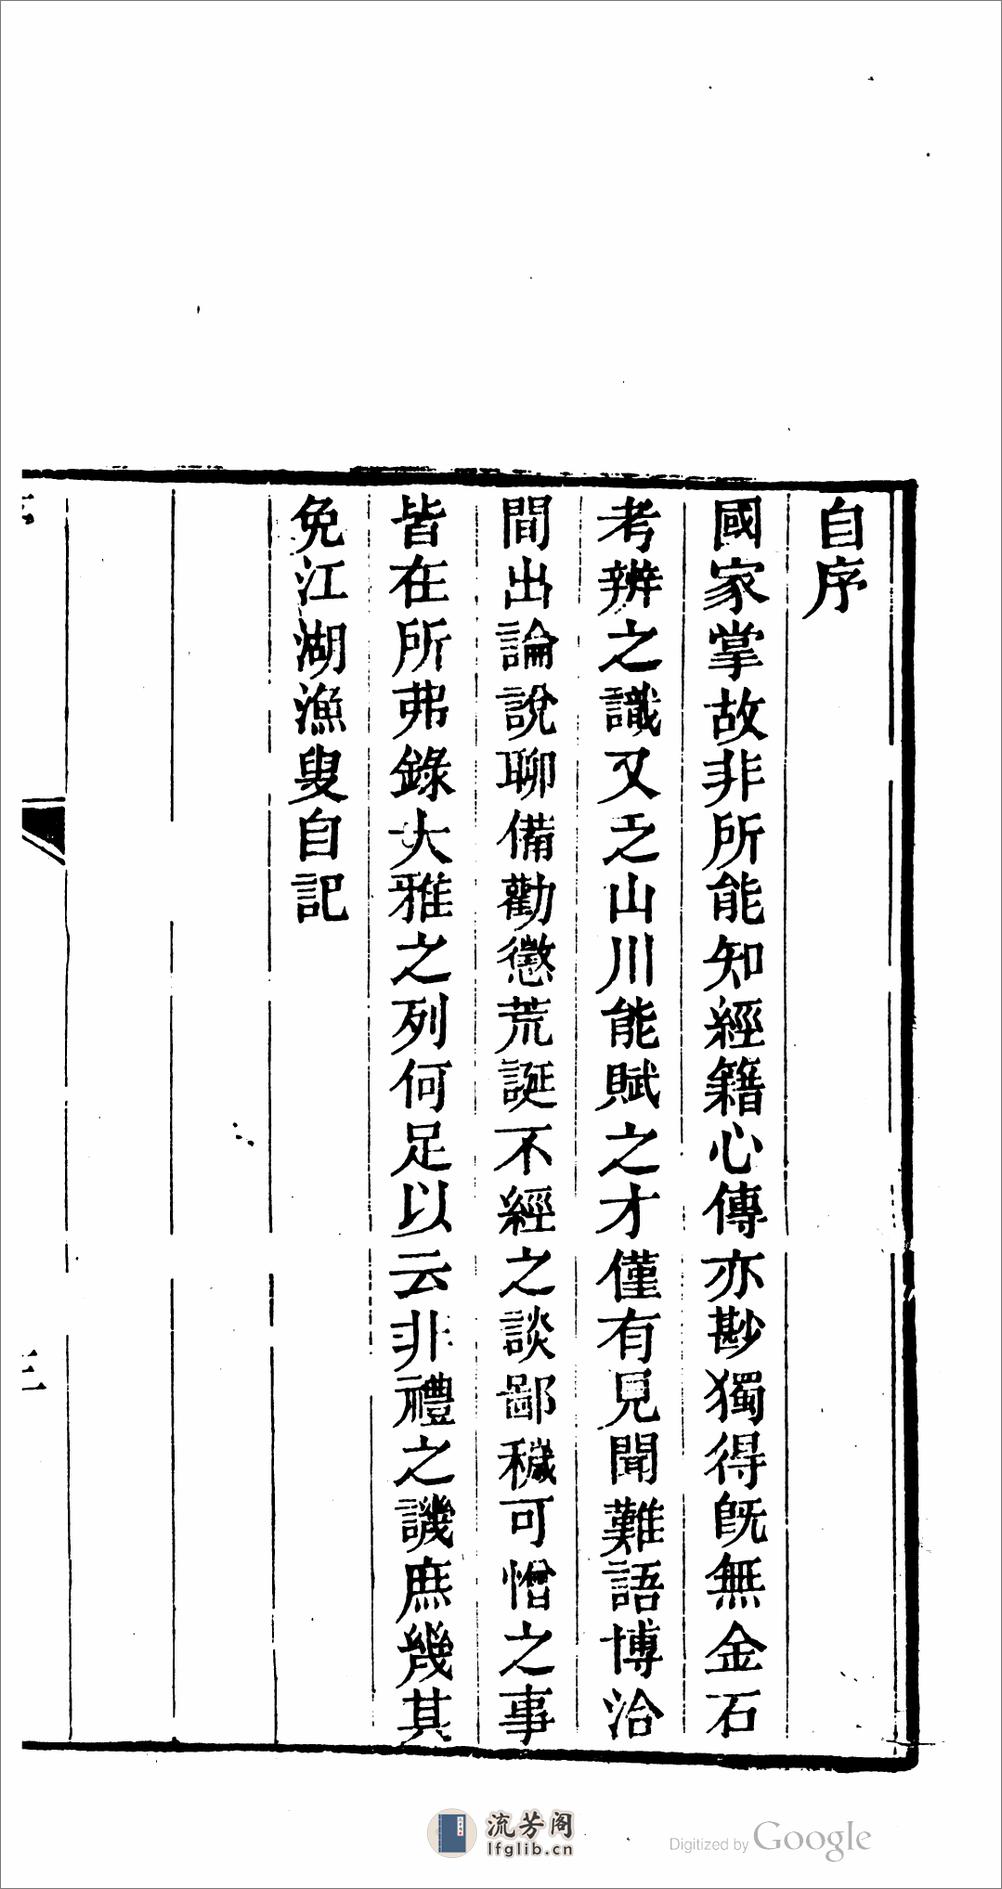 自序
國家掌故非所能知經籍心傳亦尠獨得旣無金石
考辨之識又乏山川能賦之才僅有見聞難語博洽
間出論說聊備勸懲荒誕不經之談鄙穢可憎之事
皆在所弗錄大雅之列何足以云非禮之譏庶幾其
免江湖漁叟自記
三
流芳阁
lfglib.cn
Digitized by Google